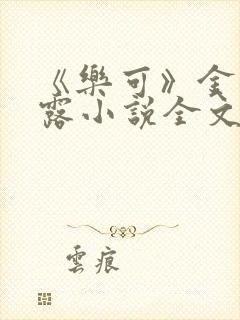 《樂可》金
露小說全文
雲痕